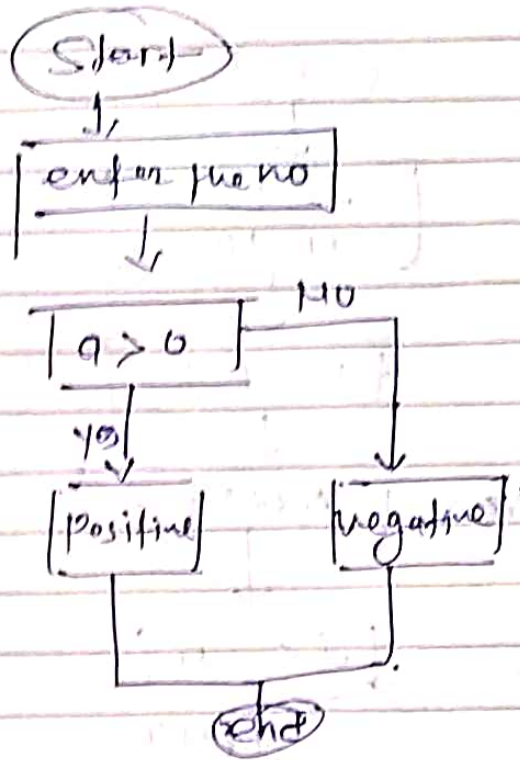 Start
enter the no
a > 0
NO
yes
positive
Negative
end